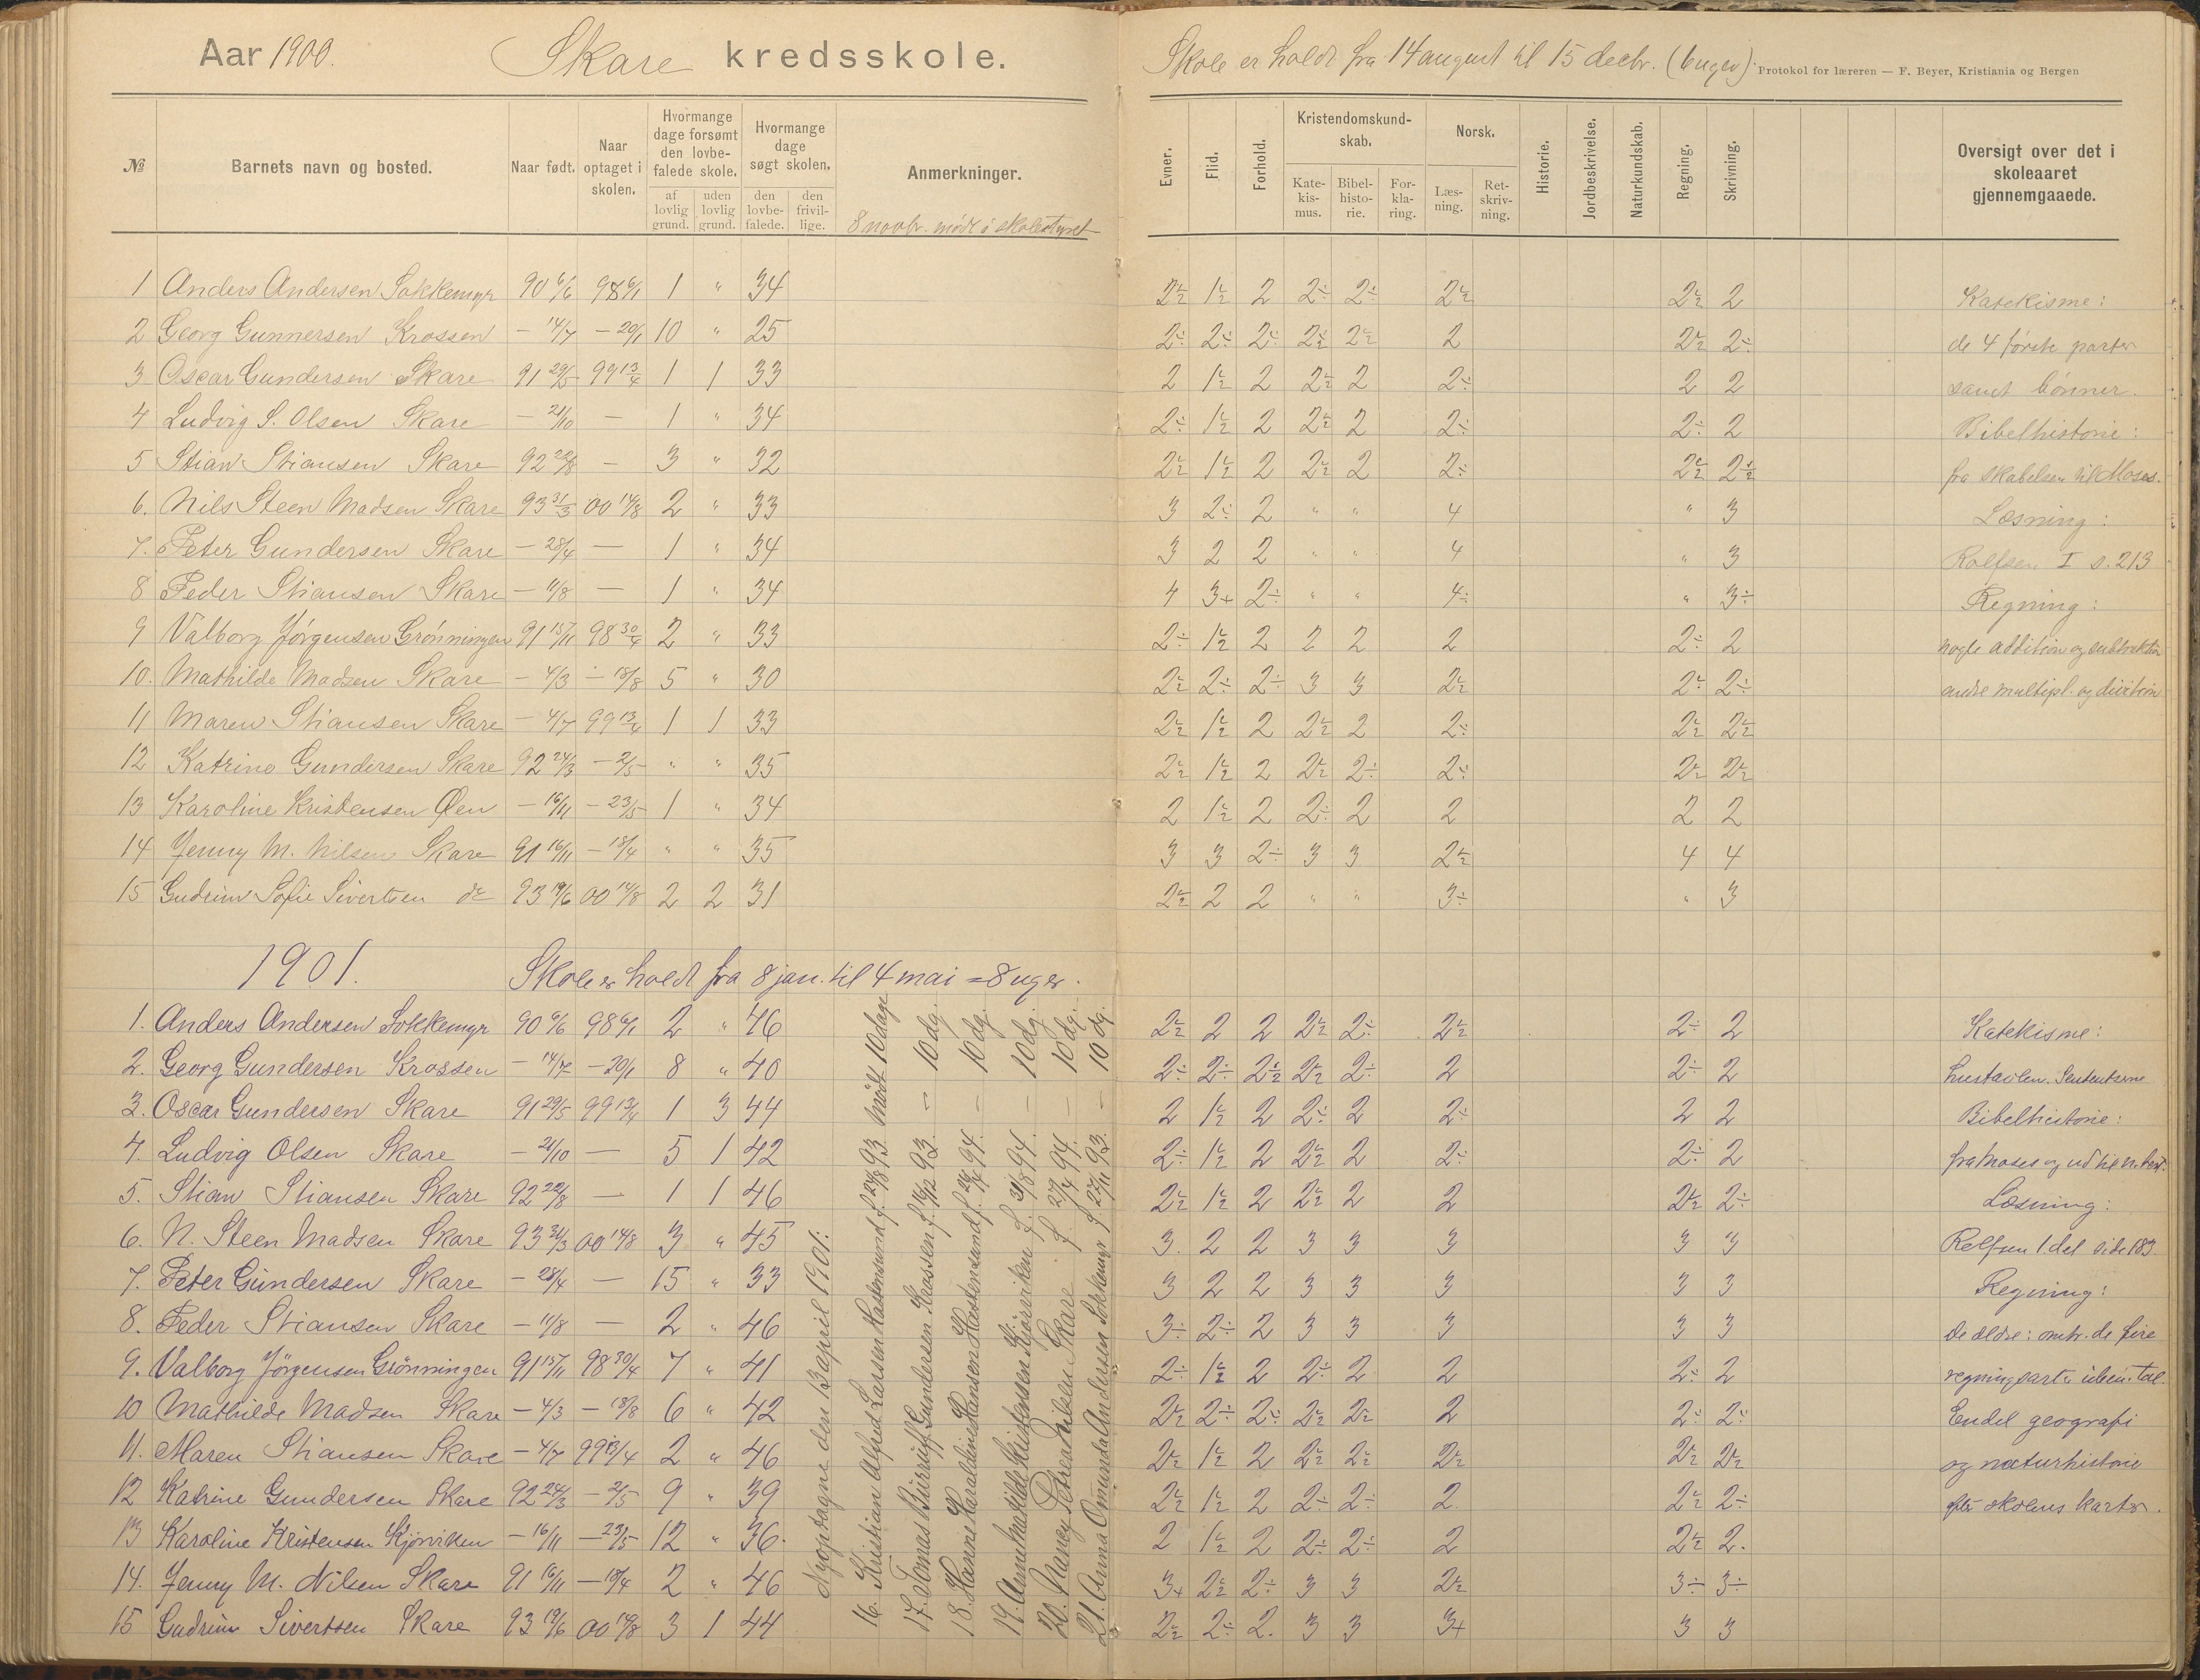 Aar 1900. Skare kredsskole.
Skole er holdt fra 14 august til 15 decbr. (6 uger).
Protokol for læreren — F. Beyer, Kristiania og Bergen
№ Barnets navn og bosted. Naar født. Naar optaget i skolen. Hvormange dage forsømt den lovbefalede skole. af lovlig grund. uden lovlig grund. Hvormange dage søgt skolen. den lovbefalede. den frivillige. Anmerkninger.
8 novbr. møde i skolestyret
Evner. Flid. Forhold. Kristendomskundskab. Katekismus. Bibelhistorie. Forklaring. Norsk. Læsning. Retskrivning. Historie. Jordbeskrivelse. Naturkundskab. Regning. Skrivning. Oversigt over det i skoleaaret gjennemgaaede.
1 Anders Andersen Sokkemyr 90 6/6 98 6/1 1 " 34 2½ 1½ 2 2÷ 2÷ 2½ 2½ 2 Katekisme:
2 Georg Gunnersen Krossen — 14/7 — 20/1 10 " 25 2÷ 2÷ 2÷ 2½ 2½ 2 2½ 2÷ de 4 første parter
3 Oscar Gundersen Skare 91 29/5 99 13/4 1 1 33 2 1½ 2 2½ 2 2÷ 2 2 samt bønner.
4 Ludvig S. Olsen Skare — 21/10 — 1 " 34 2÷ 1½ 2 2½ 2 2÷ 2÷ 2 Bibelhistorie:
5 Stian Stiansen Skare 92 22/8 — 3 " 32 2½ 1½ 2 2½ 2 2÷ 2½ 2½ fra skabelsen til Moses.
6. Nils Steen Madsen Skare 93 31/3 00 14/8 2 " 33 3 2÷ 2 " " 4 " 3 Læsning:
7. Peter Gundersen Skare — 28/4 — 1 " 34 3 2 2 " " 4 " 3 Rolfsen I s. 213
8 Peder Stiansen Skare — 11/8 — 1 " 34 4 3+ 2÷ " " 4÷ " 3÷ Regning:
9 Valborg Jörgensen Grönningen 91 15/11 98 30/4 2 " 33 2÷ 1½ 2 2 2 2 2÷ 2 nogle addition og subtraktion
10. Mathilde Madsen Skare — 4/3 — 18/8 5 " 30 2½ 2÷ 2÷ 3 3 2½ 2÷ 2÷ andre multipl. og division
11 Maren Stiansen Skare — 4/7 99 13/4 1 1 33 2½ 1½ 2 2½ 2 2÷ 2½ 2½
12 Katrine Gundersen Skare 92 24/3 — 2/5 " " 35 2½ 1½ 2 2½ 2÷ 2÷ 2½ 2½
13 Karoline Kristensen Øen — 16/11 — 23/5 1 " 34 2 1½ 2 2÷ 2 2 2 2
14 Jenny M. Nilsen Skare 91 16/11 — 18/4 " " 35 3 3 2÷ 3 3 2½ 4 4
15 Gudrun Sofie Sivertsen do 93 19/6 00 14/8 2 2 31 2½ 2 2 " " 3÷ " 3
1901. Skole er holdt fra 8 jan. til 4 mai = 8 uger.
1. Anders Andersen Sokkemyr 90 6/6 98 6/1 2 " 46 2½ 2 2 2½ 2÷ 2½ 2÷ 2 Katekisme:
2. Georg Gundersen Krossen — 14/7 — 20/1 8 " 40 2÷ 2÷ 2½ 2½ 2÷ 2 2÷ 2 hustavlen.
3. Oscar Gundersen Skare 91 29/5 99 13/4 1 3 44 2 1½ 2 2÷ 2 2÷ 2 2 Bibelhistorie:
4. Ludvig Olsen Skare — 21/10 — 5 1 42 2÷ 1½ 2 2½ 2 2÷ 2÷ 2 fra Moses og ud til n. test.
5. Stian Stiansen Skare 92 22/8 — 1 1 46 2½ 1½ 2 2½ 2 2 2½ 2÷ Læsning:
6. N. Steen Madsen Skare 93 31/3 00 14/8 3 " 45 3. 2 2 3 3 3 3 3 Rolfsen 1. del side 183.
7. Peter Gundersen Skare — 28/4 — 15 " 33 3 2 2 3 3 3 3 3 Regning:
8. Peder Stiansen Skare — 11/8 — 2 " 46 3÷ 2÷ 2 3 3 3 3 3 de ældre: omtr. de fire
9. Valborg Jörgensen Grönningen 91 15/11 98 30/4 7 " 41 2÷ 1½ 2 2÷ 2 2 2÷ 2 regningsarter i ben. tal.
10 Mathilde Madsen Skare — 4/3 — 18/8 6 " 42 2½ 2÷ 2÷ 2½ 2½ 2 2÷ 2÷ Endel geografi
11. Maren Stiansen Skare — 4/7 99 13/4 2 " 46 2½ 1½ 2 2½ 2½ 2½ 2½ 2½ og naturhistorie
12 Katrine Gundersen Skare 92 24/3 — 2/5 9 " 39 2½ 1½ 2 2÷ 2÷ 2. 2½ 2÷ efter skolens karter.
13 Karoline Kristensen Kjörviken — 16/11 — 23/5 12 " 36. 2 1½ 2 2÷ 2÷ 2 2½ 2.
14. Jenny M. Nilsen Skare 91 16/11 — 18/4 2 " 46 3+ 2½ 2÷ 3 3 2½ 3÷ 3÷
15 Gudrun Sivertsen Skare 93 19/6 00 14/8 3 1 44 2½ 2÷ 2. 3 3 3+ 3 3
Nyoptagne den 13 april 1901:
16. Kristian Alfred Larsen Hastensund f. 24/8 93. Mödt 10 dage
17. Tomas Burruff Gundersen Krossen f. 16/12 93. — 10 dg.
18. Hanne Haraldine Hansen Hastensund f. 24/4 94. — 10 dg.
19. Anne Matilde Kristensen Kjörviken f. 31/8 94. — 10 dg.
20. Nancy Petrea Nilsen Skare f. 27/4 94. — 10 dg.
21. Anna Omunda Andersen Sokkemyr f. 27/11 93. — 10 dg.